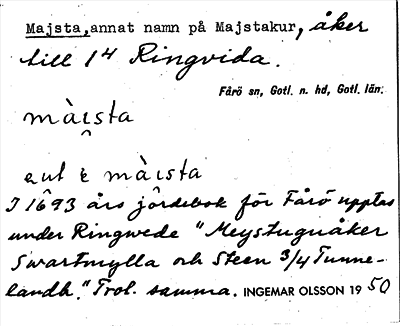 Majsta, annat namn på Majstakur, åker
till 1⁴ Ringvida.
Fårö sn, Gotl. n. hd, Gotl. län.
mὰi̯sta
mὰi̯sta
I 1693 års jordebok för Fårö upptas
under Ringwede "Meystuguåker
Swartmylla och Steen 3/4 Tunne-
landh." Trol. samma. INGEMAR OLSSON 1950